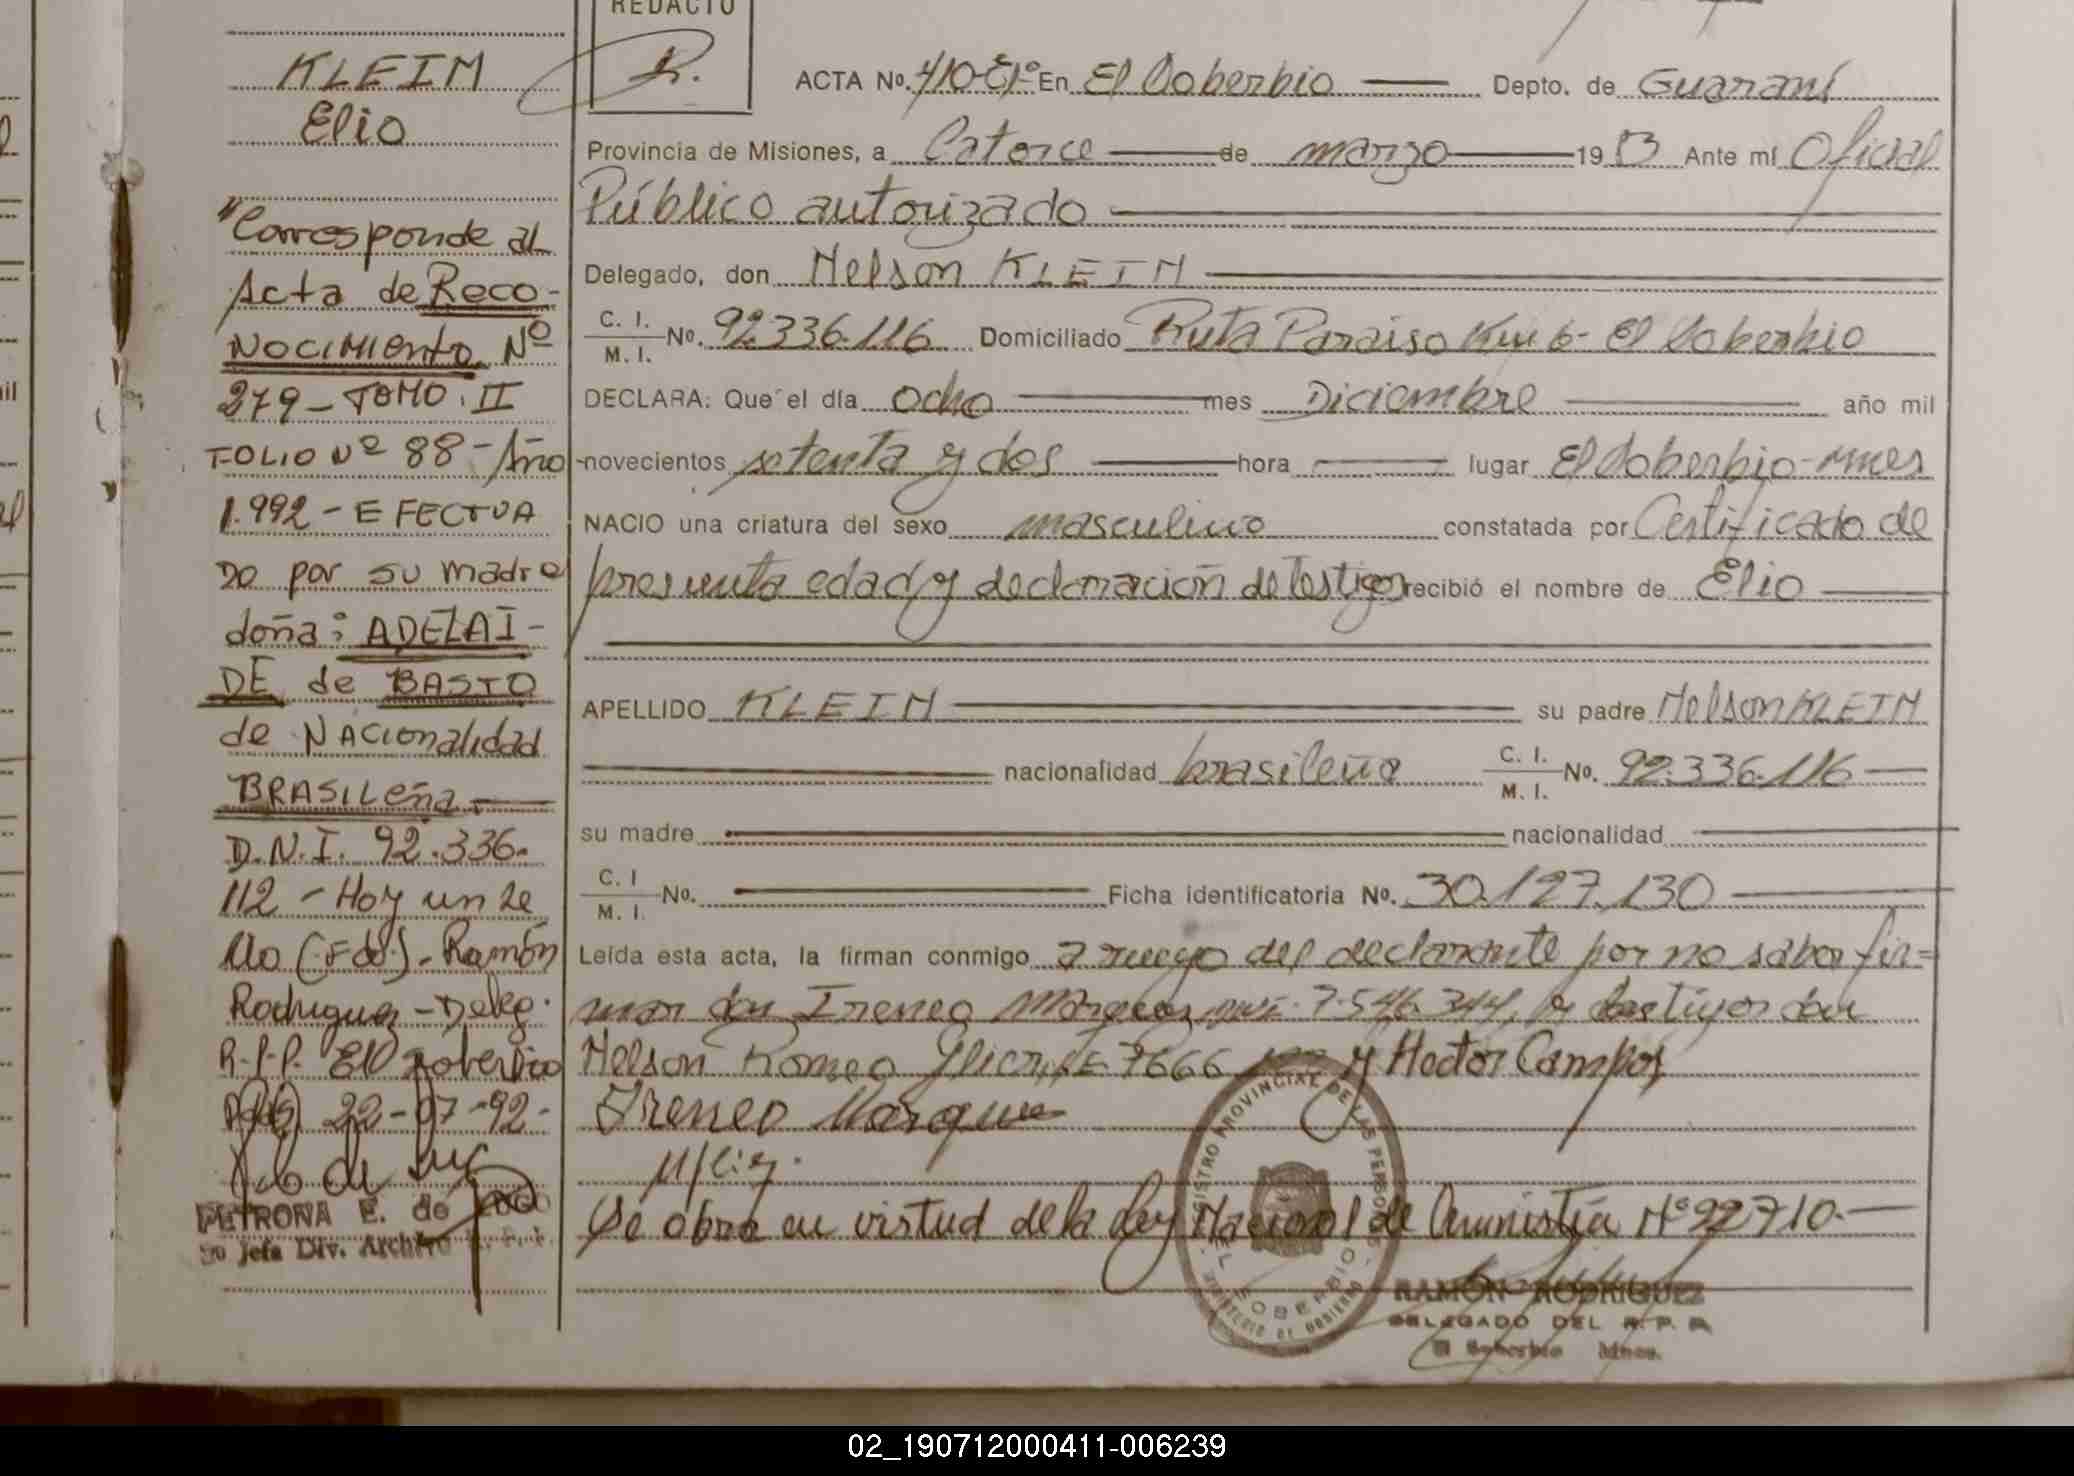 REDACTO
KLEIN
Elio
"Corresponde al
Acta de Reco-
NOCIMIENTO Nº
279 - TOMO. II
FOLIO Nº 88 - Año
1.992 - EFECTUA
DO por su madre
doña: ADELAI-
DE de BASTO
de NACIONALIDAD
BRASILEÑA.
D.N.I. 92.336.
112 - Hoy un se
llo (Fdo.) - Ramón
Rodriguez - Deleg.
R.P.P. El Soberbio
22-07-92-
PETRONA E. de
Jefa Div. Archivo
ACTA No. 410-Cı° En El Soberbio Depto. de Guaraní
Provincia de Misiones, a Catorce de marzo 1983 Ante mí Oficial
Público autorizado
Delegado, don Nelson KLEIN
C. I. / M. I. No. 92.336.116 Domiciliado Ruta Paraiso Km 6- El Soberbio
DECLARA: Que el día ocho mes Diciembre año mil
novecientos setenta y dos hora lugar El Soberbio - mnes
NACIO una criatura del sexo masculino constatada por Certificado de
presunta edad y declaración de testigos recibió el nombre de Elio
APELLIDO KLEIN su padre Nelson KLEIN
nacionalidad brasileña C. I. / M. I. No. 92.336.116
su madre nacionalidad
C. I / M. I. No. Ficha identificatoria No. 30.127.130
Leída esta acta, la firman conmigo a ruego del declarante por no saber fir=
mar don Ireneo Marquez 7.546.344, y testigos don
Nelson Romeo 7666 y Hector Campos
Ireneo Marque
Se obra en virtud de la Ley Nacional de Amnistía Nº 22710.-
REGISTRO PROVINCIAL DE LAS PERSONAS
EL SOBERBIO
MINISTERIO DE GOBIERNO
RAMON RODRIGUEZ
DELEGADO DEL R. P. P.
El Soberbio Mnes.
02_190712000411-006239